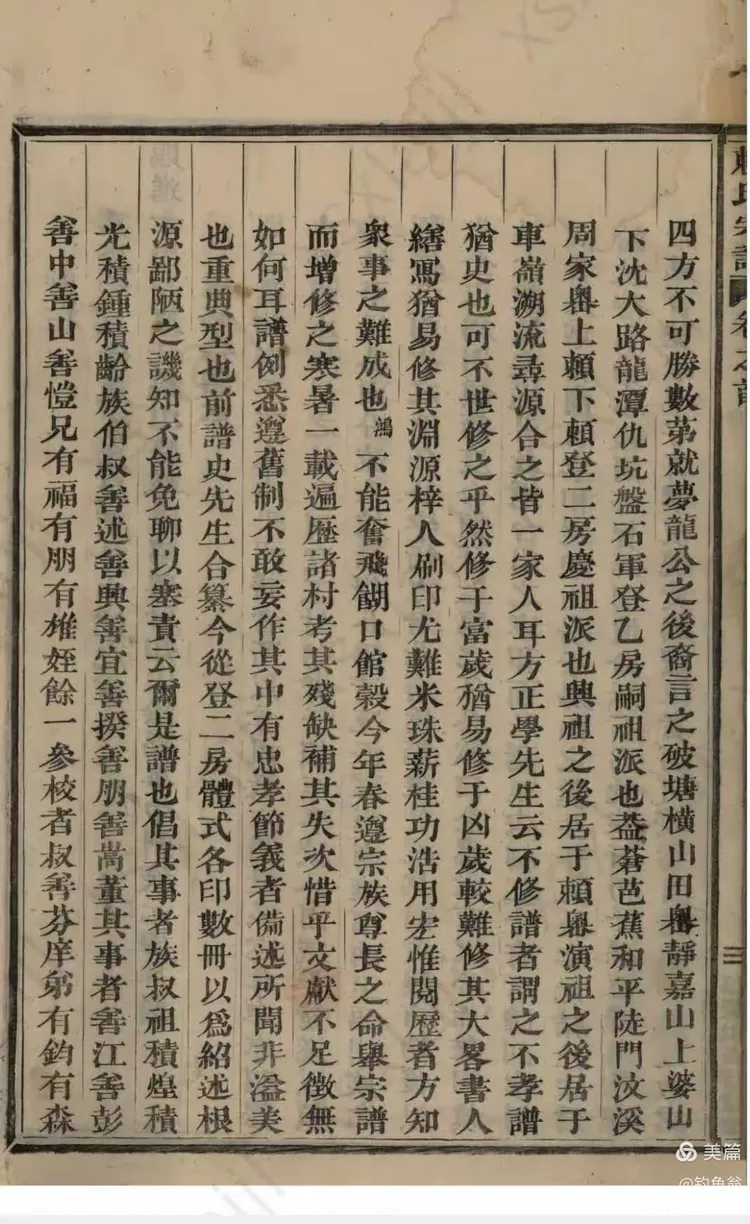 四方不可勝數苐就夢龍公之後裔言之破塘橫山田墺靜嘉山上婆山
下沈大路龍潭仇坑盤石軍登乙房嗣祖派也葢蒼芭蕉和平陡門汶溪
周家墺上賴下賴登二房慶祖派也興祖之後居于賴墺演祖之後居于
車嶺溯流尋源合之皆一家人耳方正學先生云不修譜者謂之不孝譜
猶史也可不世修之乎然修于富歲猶易修于凶歲較難修其大畧書人
繕寫猶易修其淵源梓人刷印尤難米珠薪桂功浩用宏惟閱歷者方知
衆事之難成也鴻不能奮飛餬口館穀今年春遵宗族尊長之命舉宗譜
而增修之寒暑一載遍歷諸村考其殘缺補其失次惜乎文獻不足徵無
如何耳譜例悉遵舊制不敢妄作其中有忠孝節義者備述所聞非溢美
也重典型也前譜史先生合纂今從登二房體式各印數冊以爲紹述根
源鄙陋之譏知不能免聊以塞責云爾是譜也倡其事者族叔祖積煌積
光積鍾積齡族伯叔善述善興善宜善揆善朋善嵩董其事者善江善彭
善中善山善愷兄有福有朋有雄姪餘一參校者叔善芬庠弟有鈞有森
美篇
@釣魚翁